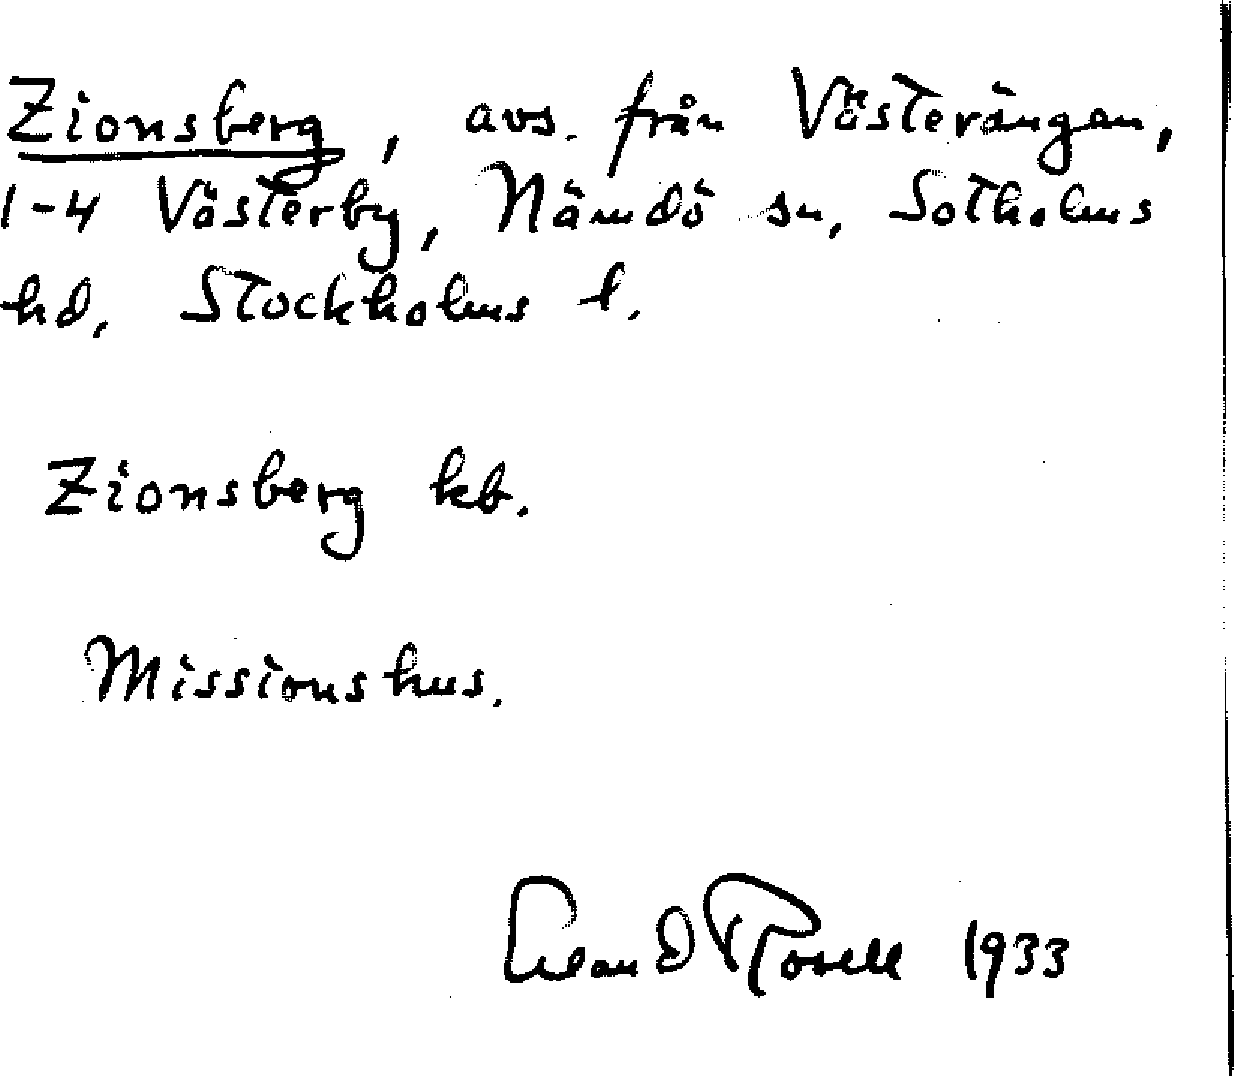 Zionsberg, avs. från Västerängen,
1-4 Västerby, Nämdö sn, Sotholms
hd, Stockholms l.
Zionsberg kb.
Missionshus.
Erland Rosell 1933